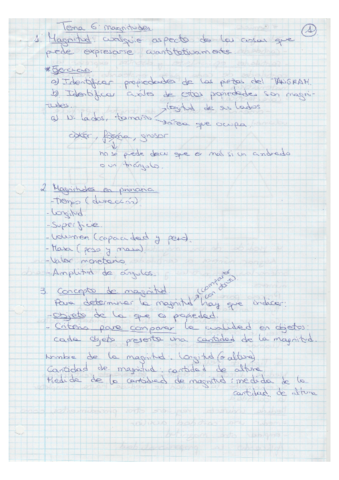 Tema 6: magnitudes
1
1. Magnitud: cualquier aspecto de las cosas que
puede expresarse cuantitativamente
Ejercicio
a) Identificar propiedades de las piezas del TANGRAM
b) Identificar cuáles de estas propiedades son magni-
tudes.
a) Nº lados, tamaño
longitud de sus lados
área que ocupa
color, forma, grosor
no se puede decir que es más si un cuadrado
o un triángulo.
2. Magnitudes en primaria
- Tiempo (duración)
- Longitud
- Superficie
- Volumen (capacidad y
- Masa (peso y masa)
- Valor monetario
- Amplitud de ángulos
3. Concepto de magnitud
Para determinar la magnitud hay que conocer:
- objeto de la que es propiedad
- Criterios para comparar la cualidad en objetos:
cada objeto presenta una cantidad de la magnitud.
Nombre de la magnitud: longitud (o altura)
Cantidad de magnitud: cantidad de altura
Medida de la cantidad de magnitud: medida de la
cantidad de altura